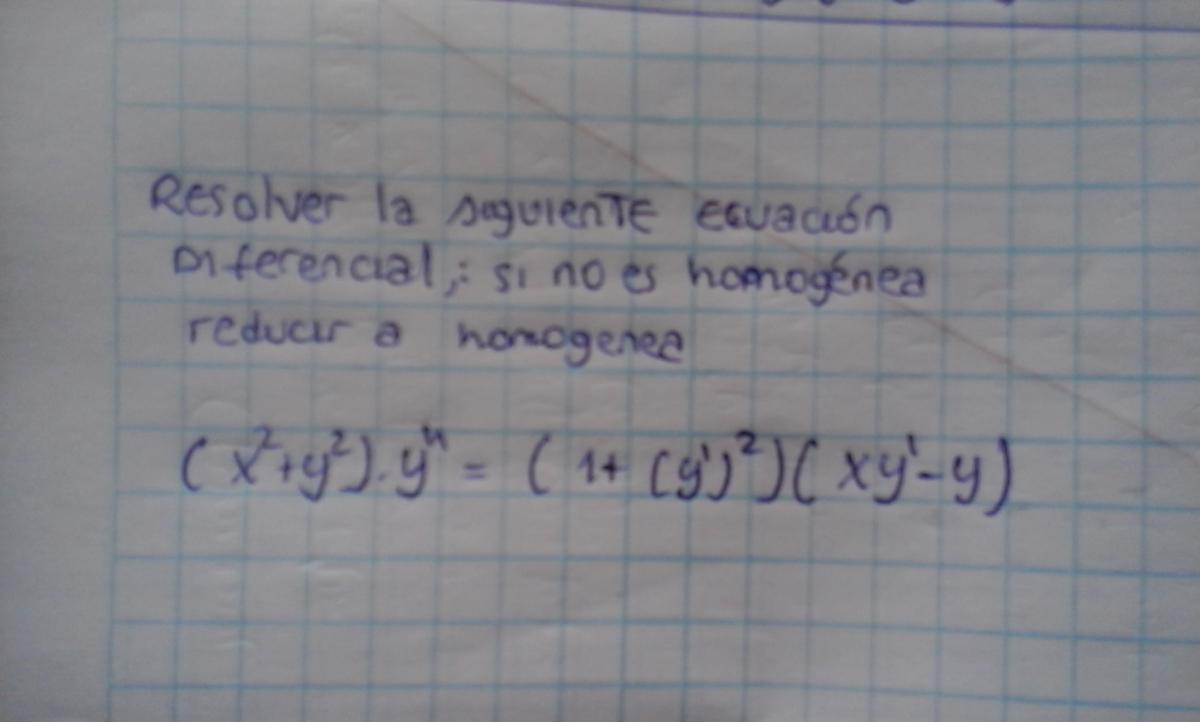 Resolver la siguiente ecuación
Diferencial,: si no es homogénea
reducir a homogenea
(x²+y²).y" = (1+(y')²)(xy'-y)